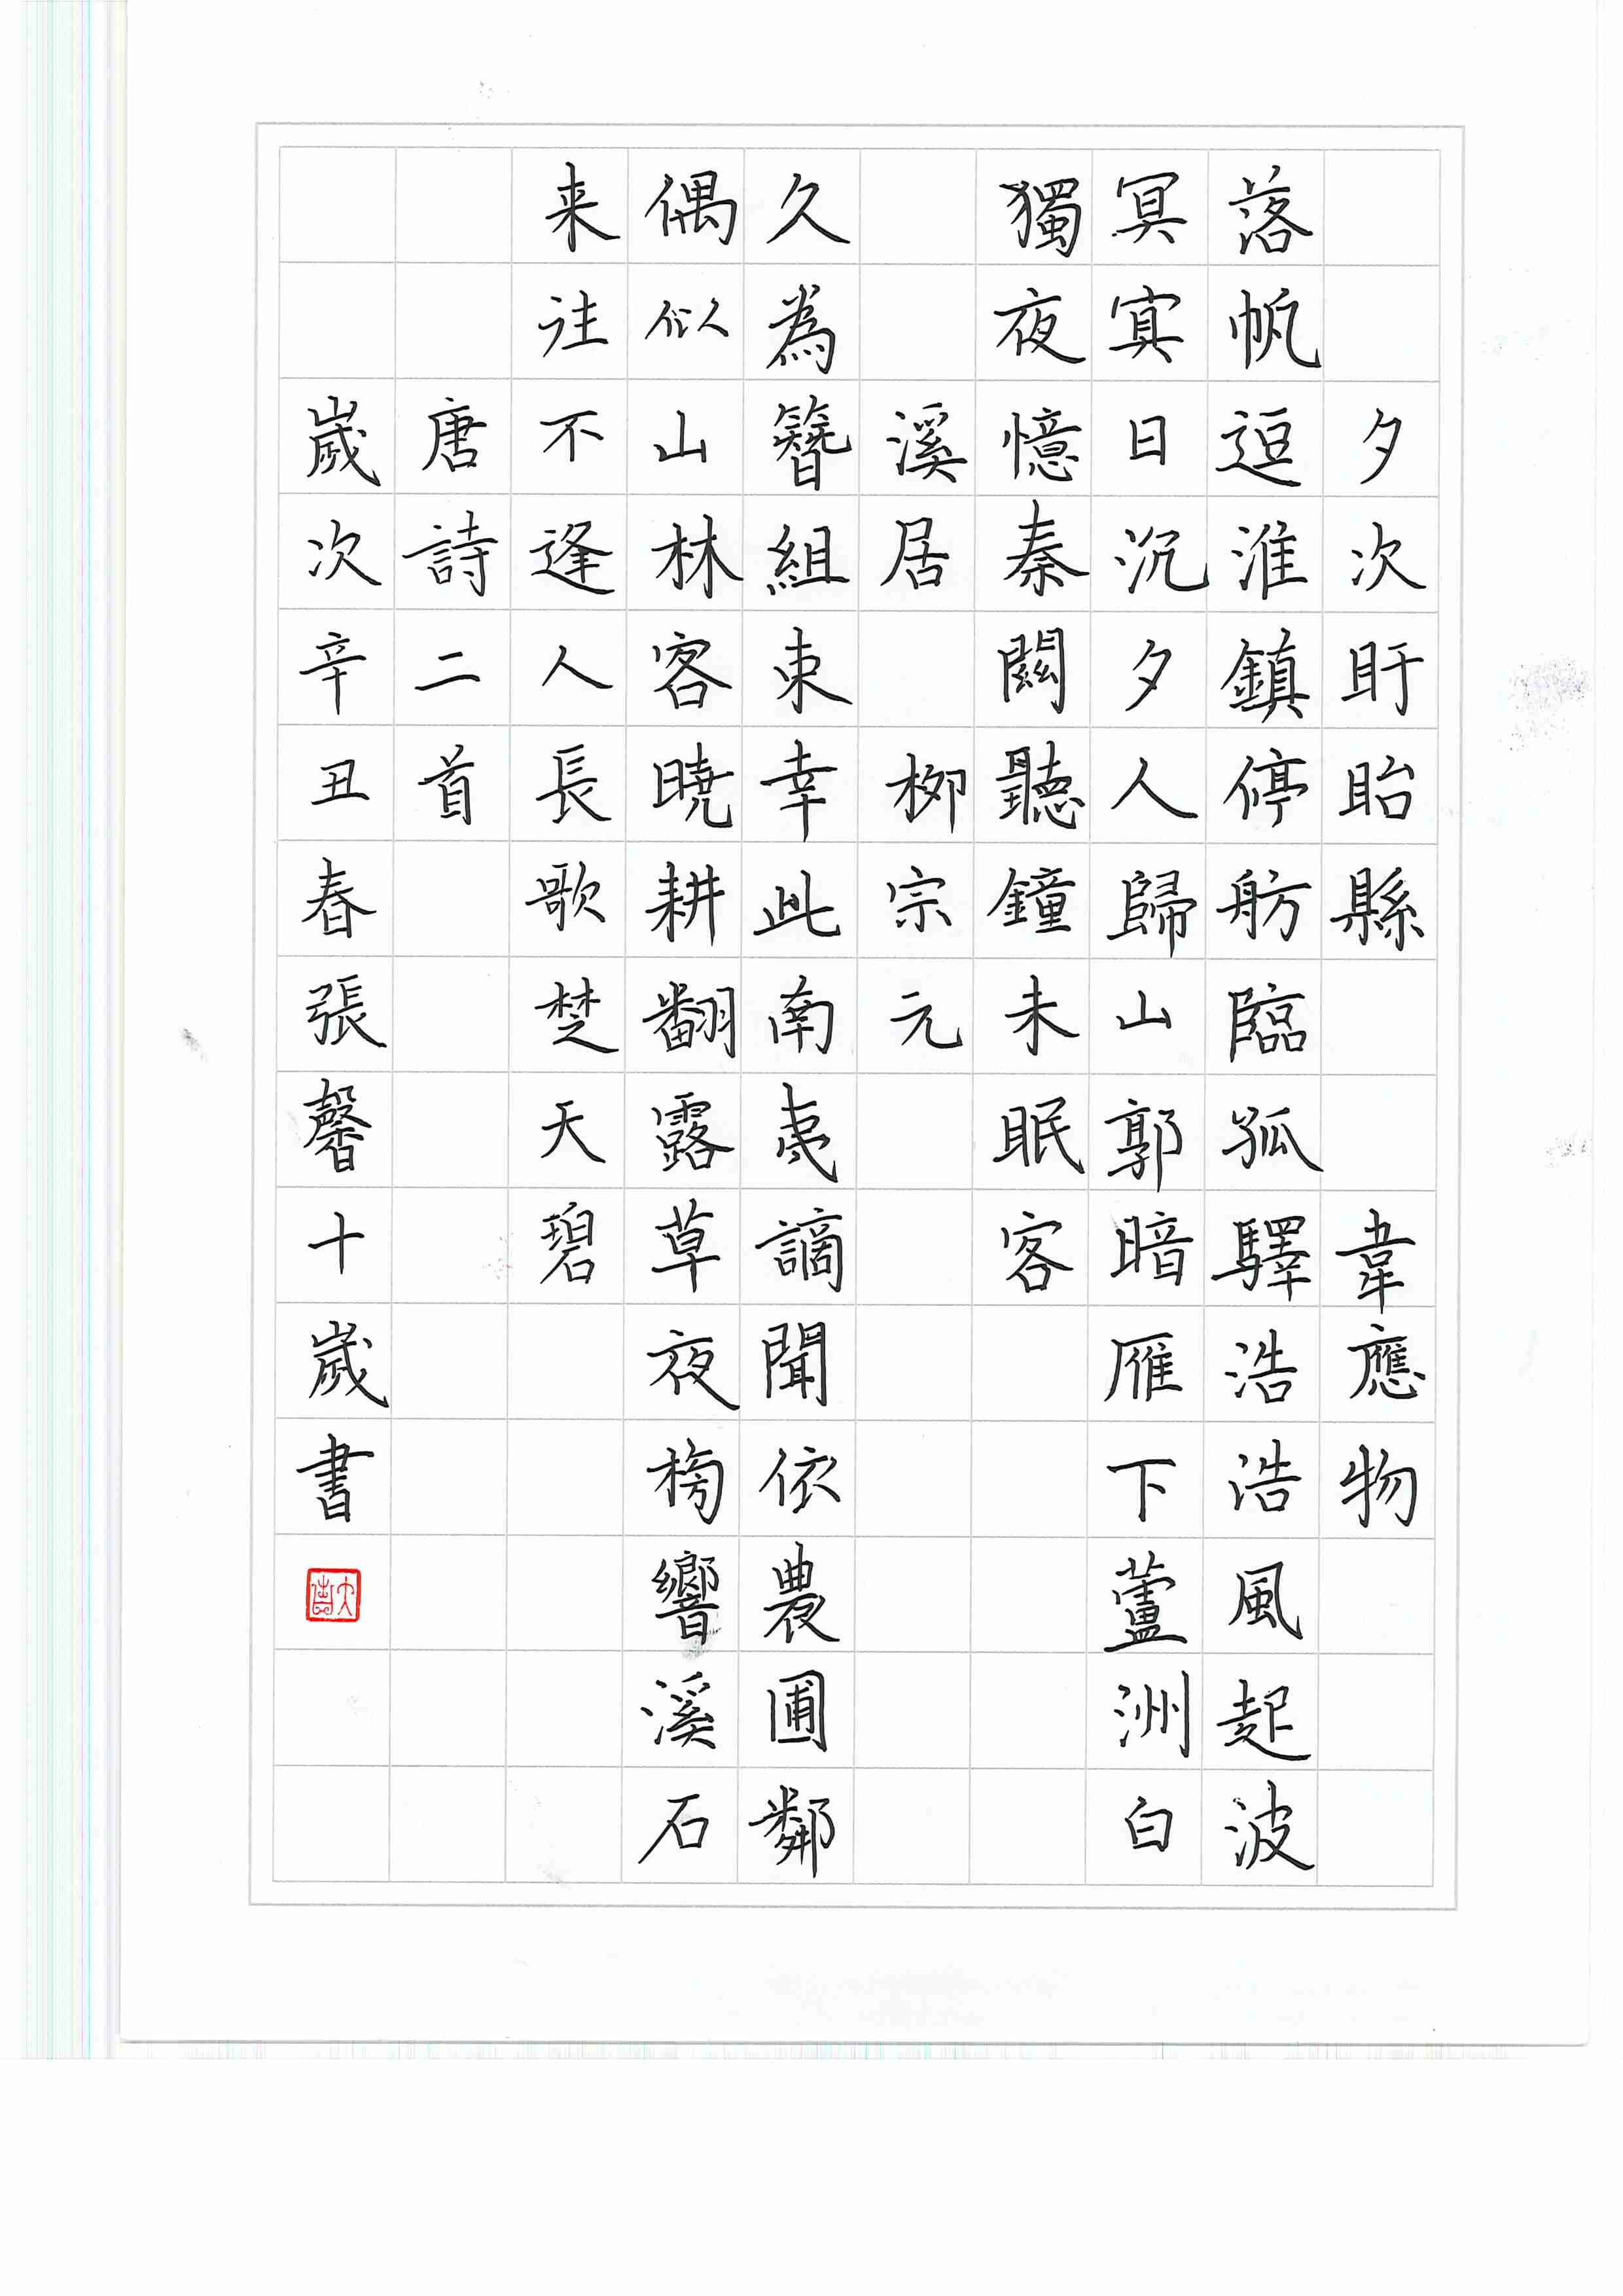 夕次盱眙縣 韋應物
落帆逗淮鎮停舫臨孤驛浩浩風起波
冥冥日沉夕人歸山郭暗雁下蘆洲白
獨夜憶秦關聽鐘未眠客
溪居 柳宗元
久為簪組束幸此南夷謫閒依農圃鄰
偶似山林客曉耕翻露草夜榜響溪石
来往不逢人長歌楚天碧
唐詩二首
歲次辛丑春張馨十歲書